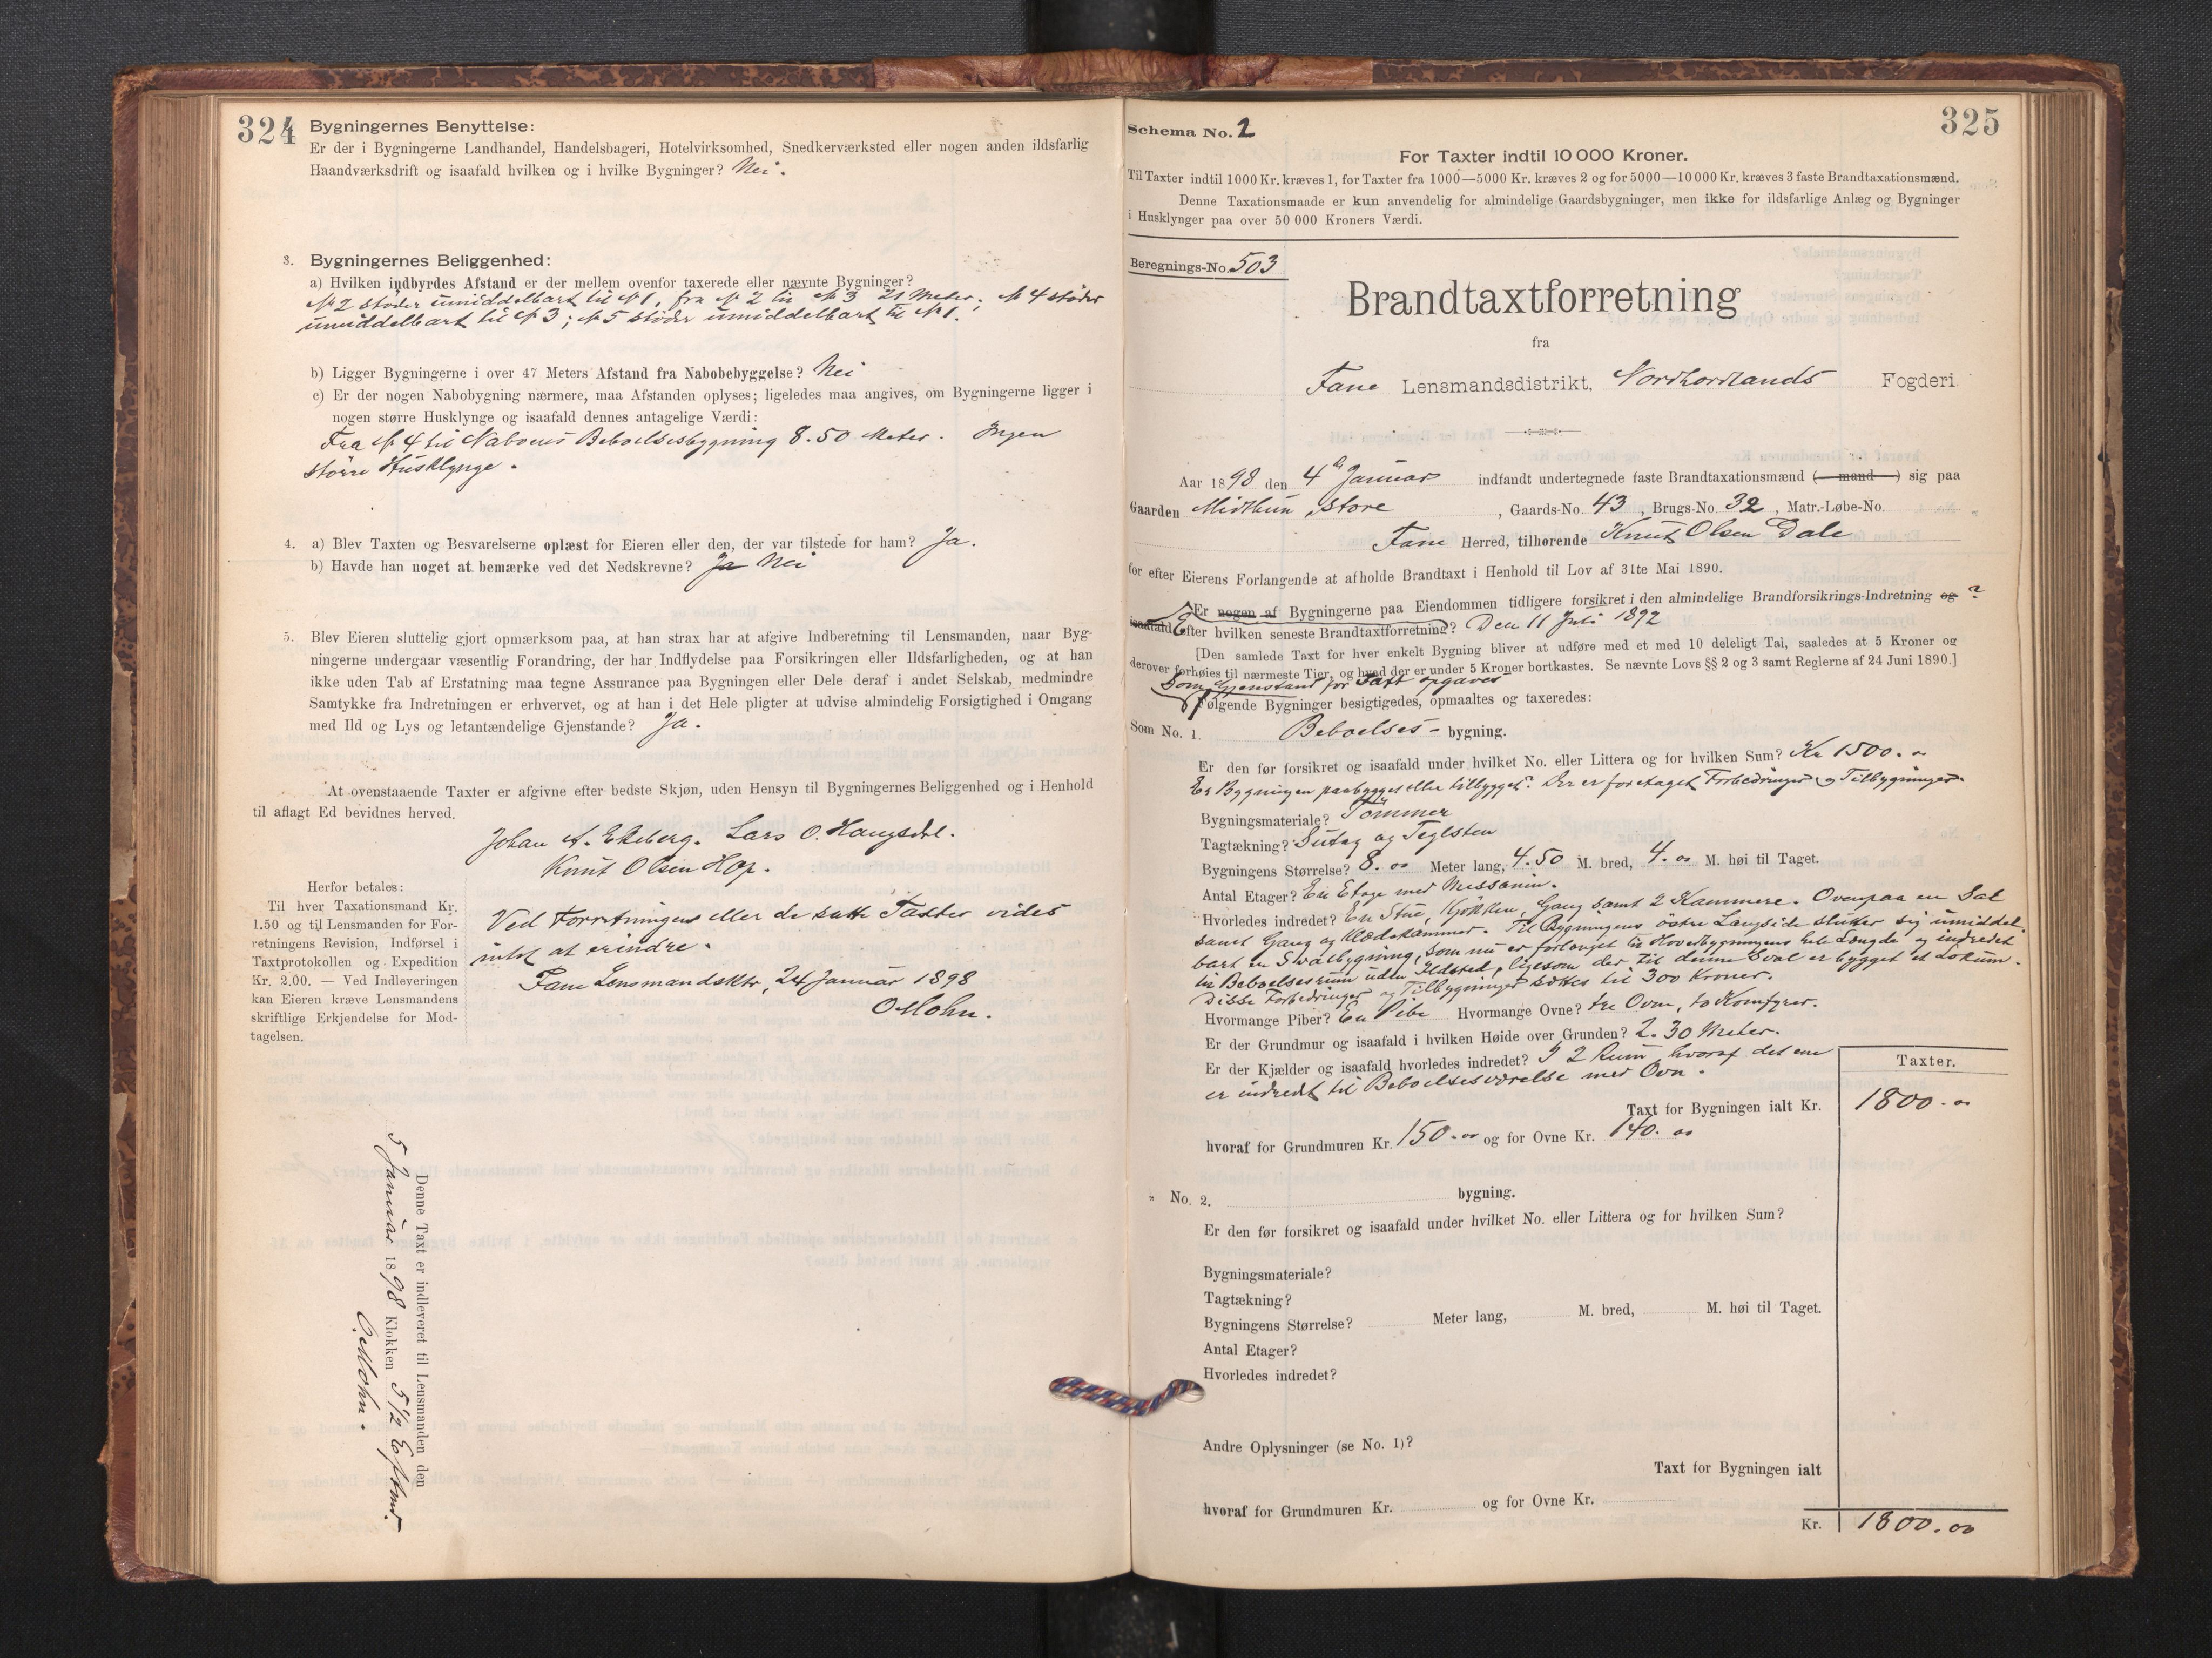 324
Bygningernes Benyttelse:
Er der i Bygningerne Landhandel, Handelsbageri, Hotelvirksomhed, Snedkerværksted eller nogen anden ildsfarlig
Haandværksdrift og isaafald hvilken og i hvilke Bygninger? Nei.
3. Bygningernes Beliggenhed:
a) Hvilken indbyrdes Afstand er der mellem ovenfor taxerede eller nævnte Bygninger?
№ 2 støder umiddelbart til № 1, fra № 2 til № 3 21 Meter; № 4 støder
umiddelbart til № 3; № 5 støder umiddelbart til № 1.
b) Ligger Bygningerne i over 47 Meters Afstand fra Nabobebyggelse? Nei
c) Er der nogen Nabobygning nærmere, maa Afstanden oplyses; ligeledes maa angives, om Bygningerne ligger i
nogen større Husklynge og isaafald dennes antagelige Værdi:
Fra № 4 til Naboens Beboelsesbygning 8.50 Meter. Ingen
større Husklynge.
4. a) Blev Taxten og Besvarelserne oplæst for Eieren eller den, der var tilstede for ham? Ja.
b) Havde han noget at bemærke ved det Nedskrevne? Ja Nei
5. Blev Eieren sluttelig gjort opmærksom paa, at han strax har at afgive Indberetning til Lensmanden, naar Byg-
ningerne undergaar væsentlig Forandring, der har Indflydelse paa Forsikringen eller Ildsfarligheden, og at han
ikke uden Tab af Erstatning maa tegne Assurance paa Bygningen eller Dele deraf i andet Selskab, medmindre
Samtykke fra Indretningen er erhvervet, og at han i det Hele pligter at udvise almindelig Forsigtighed i Omgang
med Ild og Lys og letantændelige Gjenstande? Ja.
At ovenstaaende Taxter er afgivne efter bedste Skjøn, uden Hensyn til Bygningernes Beliggenhed og i Henhold
til aflagt Ed bevidnes herved.
Johan A. Ekeberg. Lars O. Haugsdal.
Knut Olsen Hop.
Herfor betales:
Til hver Taxationsmand Kr.
1.50 og til Lensmanden for For-
retningens Revision, Indførsel i
Taxtprotokollen og Expedition
Kr. 2.00. — Ved Indleveringen
kan Eieren kræve Lensmandens
skriftlige Erkjendelse for Mod-
tagelsen.
Ved Forretningen eller de satte Taxter vides
intet at erindre.
Fane Lensmandsktr, 24 Januar 1898
O Mohn.
Denne Taxt er indleveret til Lensmanden den
5 Januar 1898 Klokken 5 1/2 Eftmd.
O. Mohn.
325
Schema No. 2
For Taxter indtil 10 000 Kroner.
Til Taxter indtil 1000 Kr. kræves 1, for Taxter fra 1000—5000 Kr. kræves 2 og for 5000—10 000 Kr. kræves 3 faste Brandtaxationsmænd.
Denne Taxationsmaade er kun anvendelig for almindelige Gaardsbygninger, men ikke for ildsfarlige Anlæg og Bygninger
i Husklynger paa over 50 000 Kroners Værdi.
Beregnings-No. 503
Brandtaxtforretning
fra
Fane Lensmandsdistrikt, Nordhordlands Fogderi.
Aar 1898 den 4de Januar indfandt undertegnede faste Brandtaxationsmænd (— mand —) sig paa
Gaarden Midthun, store, Gaards-No. 43, Brugs-No. 32, Matr.-Løbe-No.
Fane Herred, tilhørende Knut Olsen Dale
for efter Eierens Forlangende at afholde Brandtaxt i Henhold til Lov af 31te Mai 1890.
Er nogen af Bygningerne paa Eiendommen tidligere forsikret i den almindelige Brandforsikrings-Indretning og ?
isaafald Efter hvilken seneste Brandtaxtforretning? Den 11 Juli 1892
[Den samlede Taxt for hver enkelt Bygning bliver at udføre med et med 10 deleligt Tal, saaledes at 5 Kroner og
derover forhøies til nærmeste Tier, og hvad der er under 5 Kroner bortkastes. Se nævnte Lovs §§ 2 og 3 samt Reglerne af 24 Juni 1890.]
Som Gjenstand for Taxt opgaves
Følgende Bygninger besigtigedes, opmaaltes og taxeredes:
Som No. 1. Beboelses- bygning.
Er den før forsikret og isaafald under hvilket No. eller Littera og for hvilken Sum? Kr 1500.00
Er Bygningen paabygget eller tilbygget? Der er foretaget Forbedringer og Tilbygninger.
Bygningsmateriale? Tømmer
Tagtækning? Sutag og Teglsten
Bygningens Størrelse? 8.00 Meter lang, 4.50 M. bred, 4.00 M. høi til Taget.
Antal Etager? En Etage med Messanin.
Hvorledes indredet? En Stue, Kjøkken, Gang samt 2 Kammere. Ovenpaa en Sal
samt Gang og Klædekammer. Til Bygningens østre Langside slutter sig umiddel-
bart en Svalbygning, som nu er forlænget til Hovedbygningens hele Længde og indredet
til Beboelsesrum uden Ildsted, ligesom der til denne Sval er bygget et Lokum.
Disse Forbedringer og Tilbygninger sættes til 300 Kroner.
Hvormange Piber? En Pibe Hvormange Ovne? tre Ovne, to Komfyrer.
Er der Grundmur og isaafald i hvilken Høide over Grunden? 2.30 Meter.
Er der Kjælder og isaafald hvorledes indredet? I 2 Rum, hvoraf det ene
er indredt til Beboelsesværelse med Ovn.
Taxter.
Taxt for Bygningen ialt Kr. 1800.00
hvoraf for Grundmuren Kr. 150.00 og for Ovne Kr. 140.00
„ No. 2. bygning.
Er den før forsikret og isaafald under hvilket No. eller Littera og for hvilken Sum?
Bygningsmateriale?
Tagtækning?
Bygningens Størrelse? Meter lang, M. bred, M. høi til Taget.
Antal Etager?
Hvorledes indredet?
Andre Oplysninger (se No. 1)?
Taxt for Bygningen ialt
hvoraf for Grundmuren Kr. og for Ovne Kr.
Kr. 1800.00